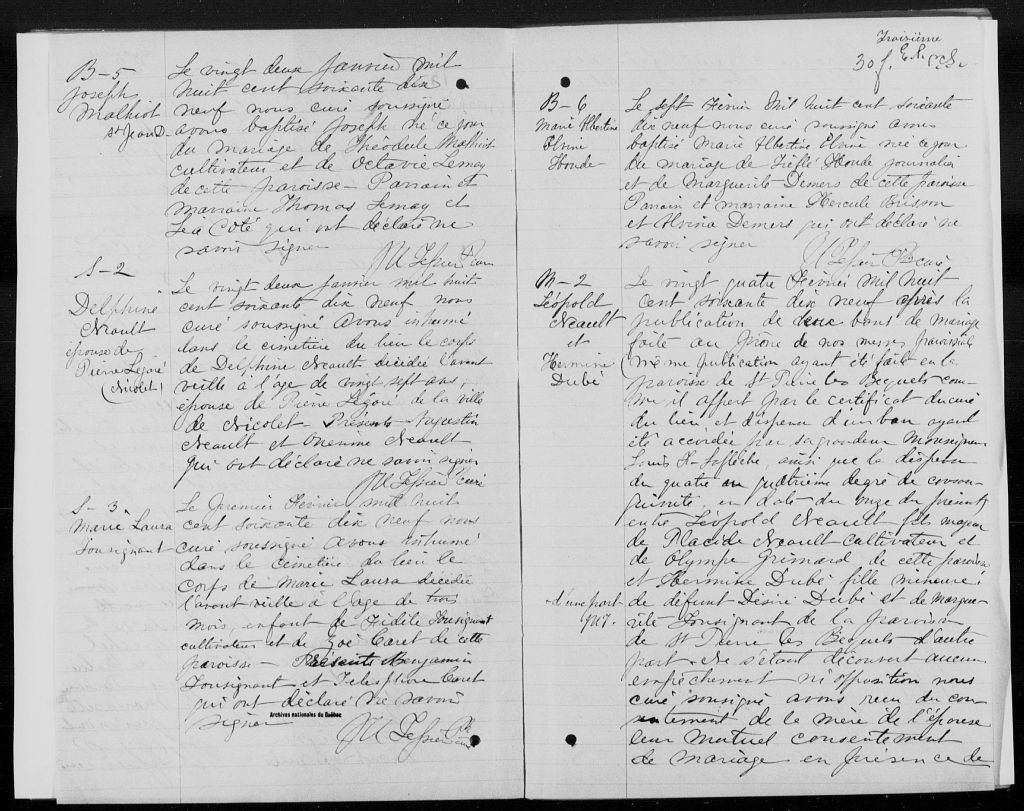 B-5
Joseph
Malhiot
St Jean D.
Le vingt deux Janvier mil
huit cent soixante dix
neuf nous curé soussigné
avons baptisé Joseph né ce jour
du mariage de Theodule Malhiot
cultivateur et de Octavie Lemay
de cette paroisse - Parrain et
marraine Thomas Lemay et
Léa Coté qui ont déclaré ne
savoir signer
S-2
Delphine
Neault
épouse de
Pierre Légaré
(Nicolet)
Le vingt deux Janvier mil huit
cent soixante dix neuf nous
curé soussigné avons inhumé
dans le cimetière du lieu le corps
de Delphine Neault décédée l'avant
veille à l'âge de vingt sept ans,
épouse de Pierre Légaré de la ville
de Nicolet - Présents - Augustin
Neault et Onesime Neault
qui ont déclaré ne savoir signer
S-3
Marie Laura
Tousignant
Le Premier Février mil huit
cent soixante dix neuf nous
curé soussigné avons inhumé
dans le cimetière du lieu le
corps de Marie Laura décédée
l'avant veille à l'age de trois
mois, enfant de Fidèle Tousignant
cultivateur et de Zoé Caret de cette
paroisse - Présents Benjamin
Tousignant et Telesphore Caret
qui ont déclaré ne savoir
signer
Archives nationales du Québec
Troisième
30 f.
B-6
Marie Albertine
Elvine
Houde
Le sept Février Mil huit cent soixante
dix neuf nous curé soussigné avons
baptisé Marie Albertine Elvine née ce jour
du mariage de Trefflé Houde journalier
et de Marguerite Demers de cette paroisse
Parrain et marraine Hercule Brisson
et Alvina Demers qui ont déclaré ne
savoir signer
M-2
Léopold
Neault
et
Hermine
Dubé
Le vingt quatre Février mil huit
cent soixante dix neuf après la
publication de deux bans de mariage
faite au Prône de nos messes paroissiales
même publication ayant été faite en la
paroisse de St Pierre les Becquets com-
me il appert par le certificat du curé
du lieu et dispense d'un ban ayant
été accordée par sa grandeur Monseigneur
Louis F. Laflèche, ainsi que la dispense
du quatre au quatrième degré de consan-
guinité en date du onze du présent,
entre Léopold Neault fils majeur
de Placide Neault cultivateur et
de Olympe Grimard de cette paroisse
d'une part
et Hermine Dubé fille mineure
de défunt Désiré Dubé et de Margue-
rite Tousignant de la paroisse
de St Pierre les Becquets d'autre
part. Ne s'étant découvert aucun
empêchement ni opposition nous
curé soussigné avons reçu du con-
sentement de la mère de l'épouse
leur mutuel consentement
de mariage en présence de